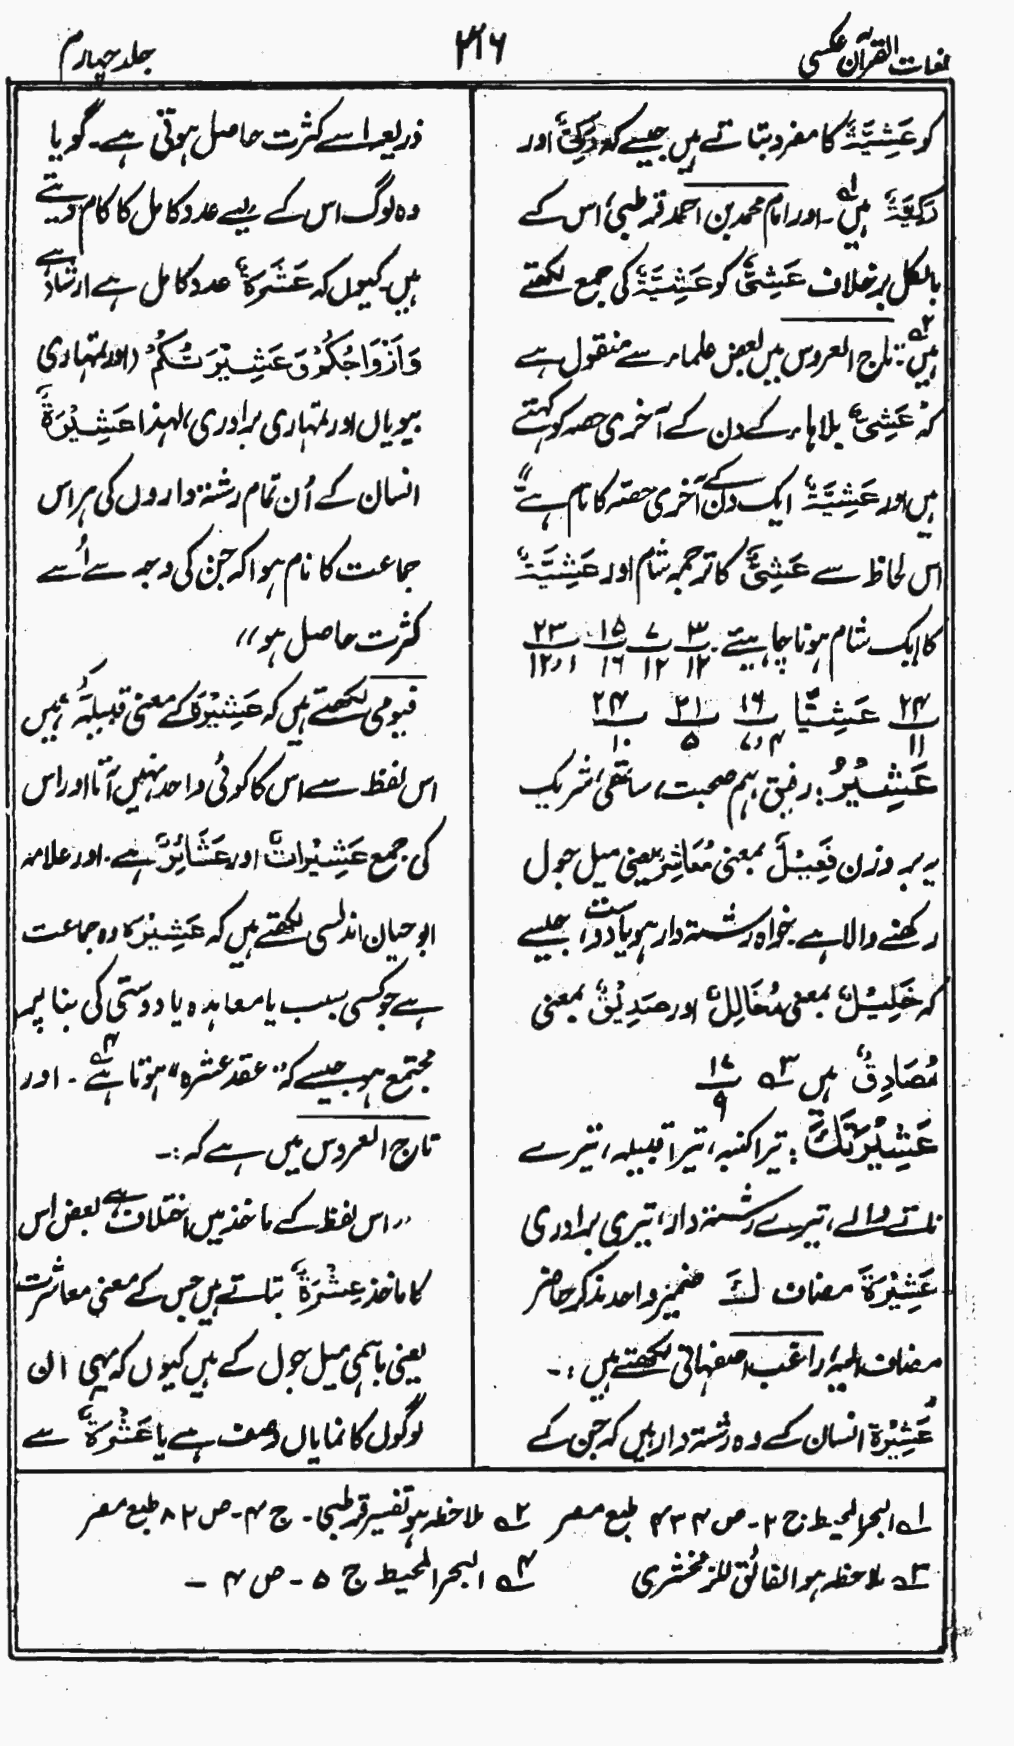 لغات القرآن عکسی
۳۱۶
جلد چہارم
کو عَشِیَّۃٌ کا مفرد بتاتے ہیں جیسے کہ رَکِیٌّ اور
رَکِیَّۃٌ ہیں۱؎۔ اور امام محمد بن احمد قرطبی اس کے
بالکل برخلاف عَشِیٌّ کو عَشِیَّۃٌ کی جمع لکھتے
ہیں۲؎ :: تاج العروس میں بعض علماء سے منقول ہے
کہ عَشِیٌّ بلا ہاء کے دن کے آخری حصہ کو کہتے
ہیں اور عَشِیَّۃٌ ایک دن کے آخری حصّہ کا نام ہے"
اس لحاظ سے عَشِیٌّ کا ترجمہ شام اور عَشِیَّۃٌ
کا ایک شام ہونا چاہیئے۔ ۳/۱۲ ۷/۱۲ ۱۵/۱۶ ۲۳/۱۲،۱
۲۴/۱۱ عَشِیًّا ۱۶/۷،۴ ۲۱/۵ ۲۴/۱۰
عَشِیْرُ: رفیق، ہم صحبت، ساتھی، شریک
یہ بر وزن فَعِیْلٌ بمعنی مُعَاشِر یعنی میل جول
رکھنے والا ہے خواہ رشتہ دار ہو یا دوست، جیسے
کہ خَلِیْلٌ بمعنی مُخَالِلٌ اور صَدِیْقٌ بمعنی
مُصَادِقٌ ہیں ۳؎ ۱۷/۹
عَشِیْرَتَکَ: تیرا کنبہ، تیرا قبیلہ، تیرے
ناتے والے، تیرے رشتہ دار، تیری برادری
عَشِیْرَۃَ مضاف كَ ضمیر واحد مذکر حاضر
مضاف الیہ، راغب اصفہانی لکھتے ہیں :۔
"عَشِیْرَۃ انسان کے وہ رشتہ دار ہیں کہ جن کے
ذریعہ اسے کثرت حاصل ہوتی ہے۔ گویا
وہ لوگ اس کے لیے عدد کامل کا کام دیتے
ہیں۔ کیوں کہ عَشَرَۃٌ عدد کامل ہے ارشاد ہے
وَاَزْوَاجُکُمْ وَعَشِیْرَتُکُمْ (اور تمہاری
بیویاں اور تمہاری برادری) لہٰذا عَشِیْرَۃٌ
انسان کے اُن تمام رشتہ داروں کی ہر اس
جماعت کا نام ہوا کہ جن کی وجہ سے اُسے
کثرت حاصل ہو"
فیومی لکھتے ہیں کہ عَشِیْرَۃ کے معنی قبیلہ کے ہیں
اس لفظ سے اس کا کوئی واحد نہیں آتا اور اس
کی جمع عَشِیْرَاتٌ اور عَشَائِرُ ہے۔ اور علامہ
ابو حیان اندلسی لکھتے ہیں کہ عَشِیْرَہ وہ جماعت
ہے جو کسی سبب یا معاہدہ یا دوستی کی بنا پر
مجتمع ہو جیسے کہ "عقد عشرہ" ہوتا ہے۴؎۔ اور
تاج العروس میں ہے کہ :۔
"اس لفظ کے ماخذ میں اختلاف ہے بعض اس
کا ماخذ عِشْرَۃٌ بتاتے ہیں جس کے معنی معاشرت
یعنی باہمی میل جول کے ہیں کیوں کہ یہی ان
لوگوں کا نمایاں وصف ہے یا عَشَرَۃٌ سے
۱؎ البحر المحیط ج ۲۔ ص ۴۳۴ طبع مصر ۲؎ ملاحظہ ہو تفسیر قرطبی۔ ج ۴۔ ص ۸۲ طبع مصر
۳؎ ملاحظہ ہو الفائق للزمخشری ۴؎ البحر المحیط ج ۵۔ ص ۴ ۔